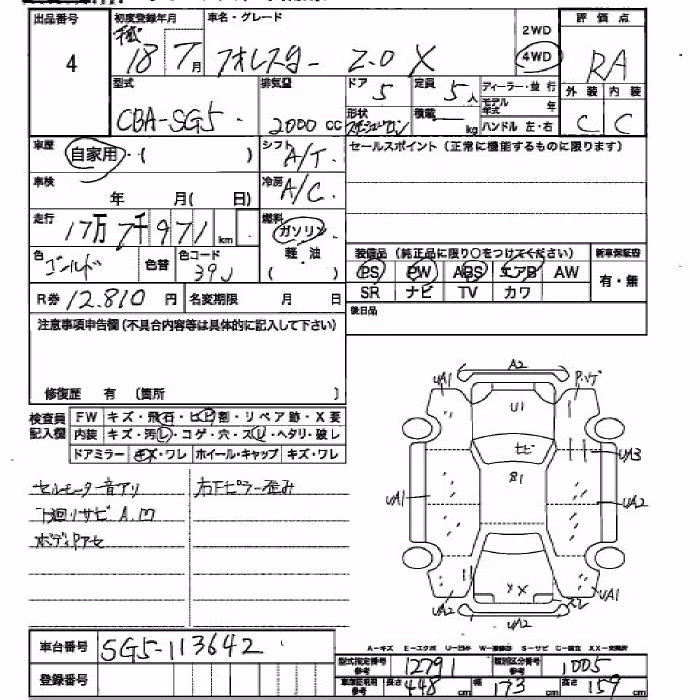 出品番号 初度登録年月 車名・グレード 2WD 評価点
4 18 7月 フォレスター 2.0 X 4WD RA
型式 排気量 ドア 5 定員 5人 ディーラー・並行 外装 内装
CBA-SG5 2000cc 形状 積載 kg モデル年式 年 C C
ハンドル 左・右
車歴 自家用・( ) シフト A/T セールスポイント(正常に機能するものに限ります)
車検 年 月( 日) 冷房 A/C
走行 17万7千971km 燃料 ガソリン
軽・油
( )
色 ゴールド 色替 色コード 39J
装備品(純正品に限り○をつけてください) 新車保証書
PS PW ABS エアB AW 有・無
SR ナビ TV カワ
R券 12.810円 名変期限 月 日
後日品
注意事項申告欄(不具合内容等は具体的に記入して下さい)
修復歴 有 〔箇所 〕
検査員記入欄 FW キズ・飛石・ヒビ割・リペア跡・X要
内装 キズ・汚レ・コゲ・穴・スレ・ヘタリ・破レ
ドアミラー キズ・ワレ ホイール・キャップ キズ・ワレ
セルモーター音アリ 右Fピラー歪み
下回リサビ A.M
ボディアセ
A2
UA1
U1
UA3
UA1
UA2
XX
UA2
UA2
UA1
車台番号 SG5-113642
登録番号
A-キズ E-エクボ U-凹み W-補修跡 S-サビ C-腐食 XX-交換済
型式指定番号 参考 12791 類別区分番号 参考 1005
長さ 448cm 幅 173cm 高さ 159cm